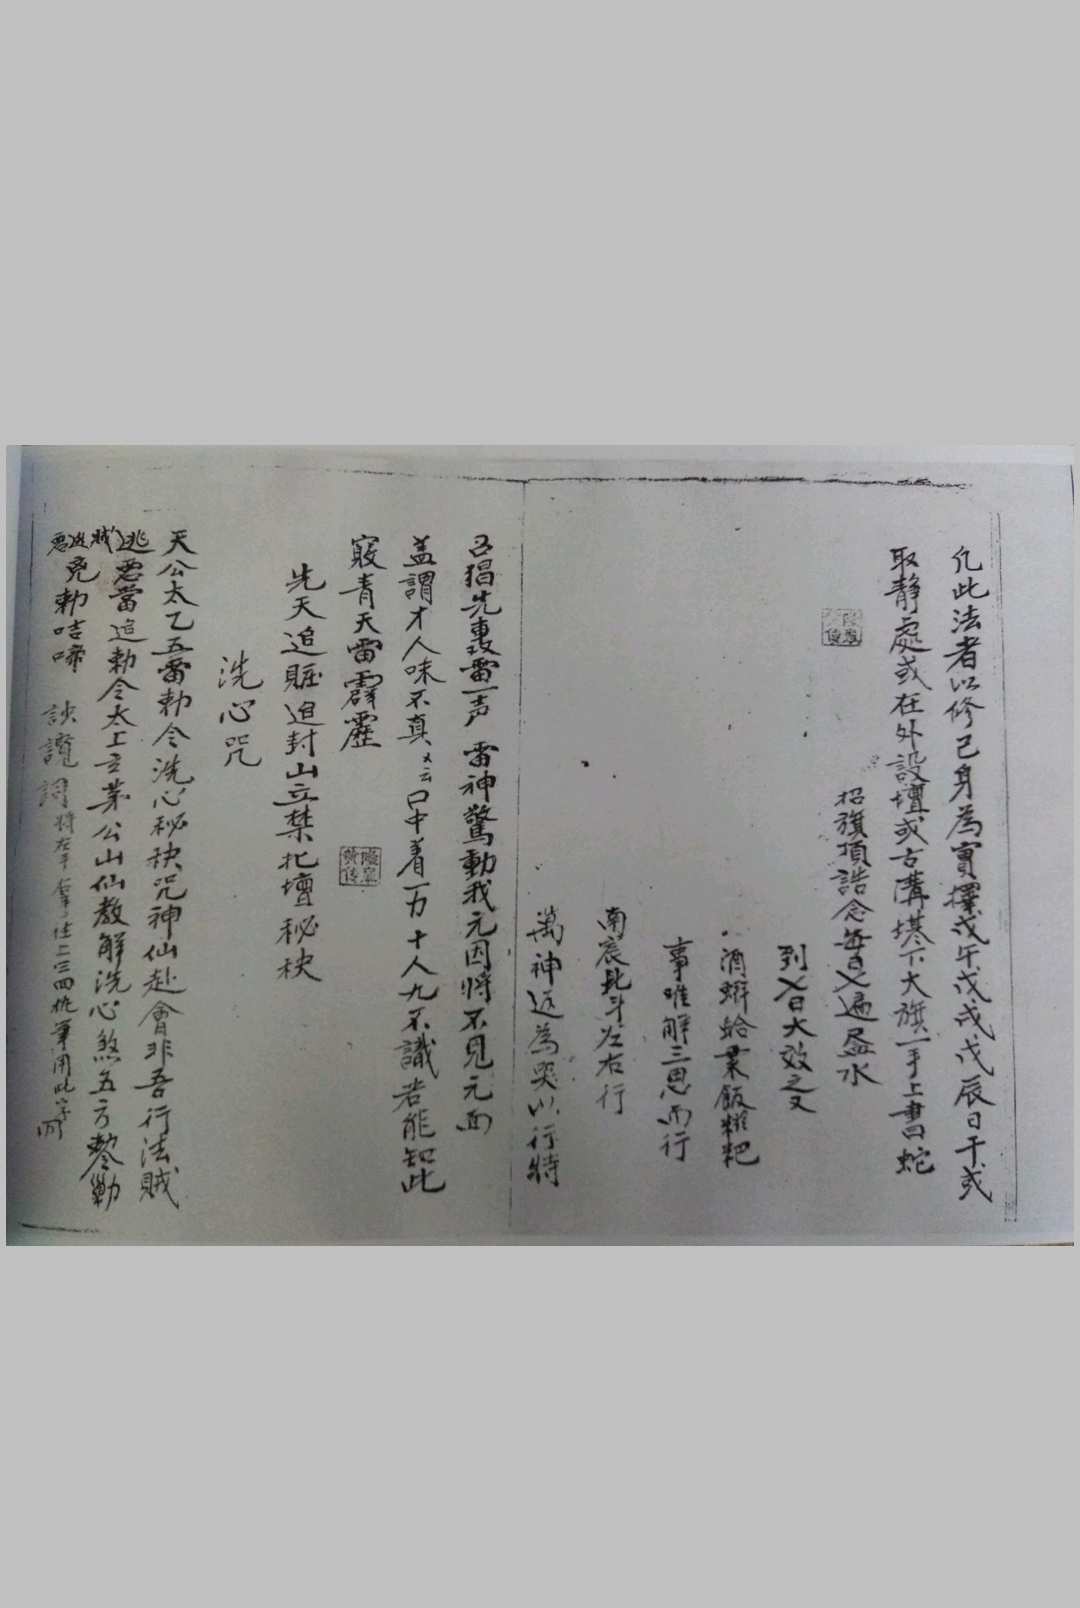 凢此法者以修己身為實擇戊午戊戌戊辰日干或
取静處或在外設壇或古溝墖下大旗一手上書蛇
招旗項誥念每日乂遍盈水
到乂日大效之又
酒蚌蛤業飯糍粑
事唯解三思而行
南宸北斗左右行
萬神返為哭以行特
召猖先轟雷一声 雷神驚動我元因將不見元面
盖謂才人味不真 口中着一万十人九不識若能知此
寢青天雷霹靂
先天追賍追封山立禁扎壇秘袂
洗心咒
天公太乙五雷勅令洗心秘袂咒神仙赴會非吾行法賊
逃悪當追勅令太上立茅公山仙教解洗心煞五方
賊逃悪
勅咭啼
詞將左手